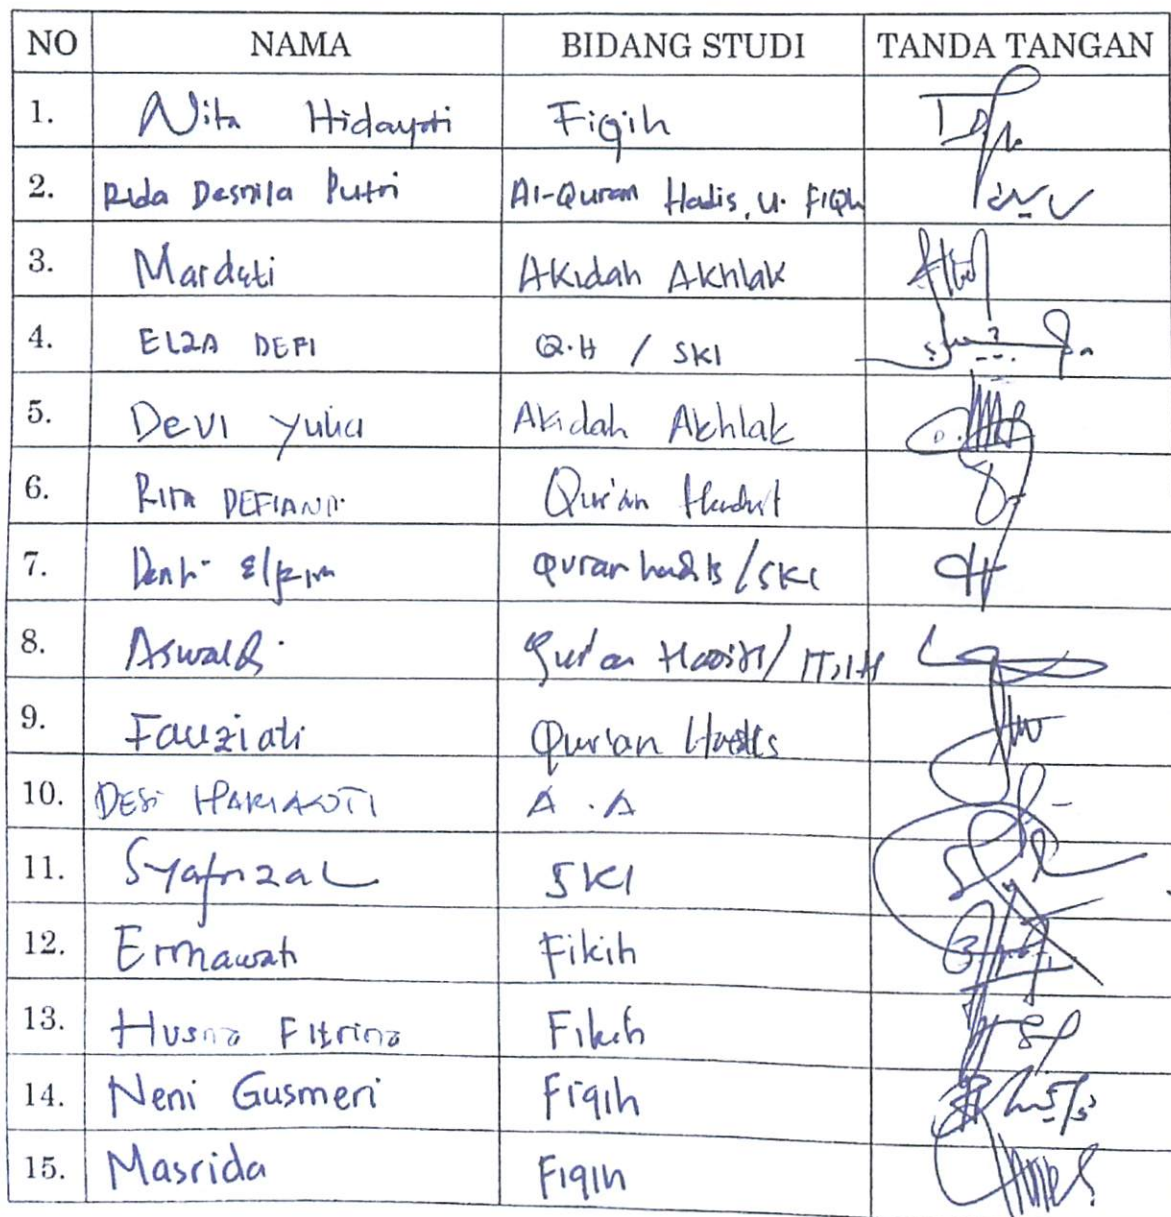 NO NAMA BIDANG STUDI TANDA TANGAN
1. Nita Hidayati Fiqih
2. Rida Desnila Putri Al-Quran Hadis, U. FIQh
3. Mardeti Akidah Akhlak
4. ELZA DEFI Q.H / SKI
5. Devi Yulia Akidah Akhlak
6. Rita DEFIANTI Qur'an Hadist
7. Quran hadis / SKI
8. Aswaldi Qur'an
9. Fauziati Qur'an Hadis
10. DESI A.A
11. Syafrizal SKI
12. Ermawati Fikih
13. Husna Fitrina Fikih
14. Neni Gusmeri Fiqih
15. Masrida Fiqih